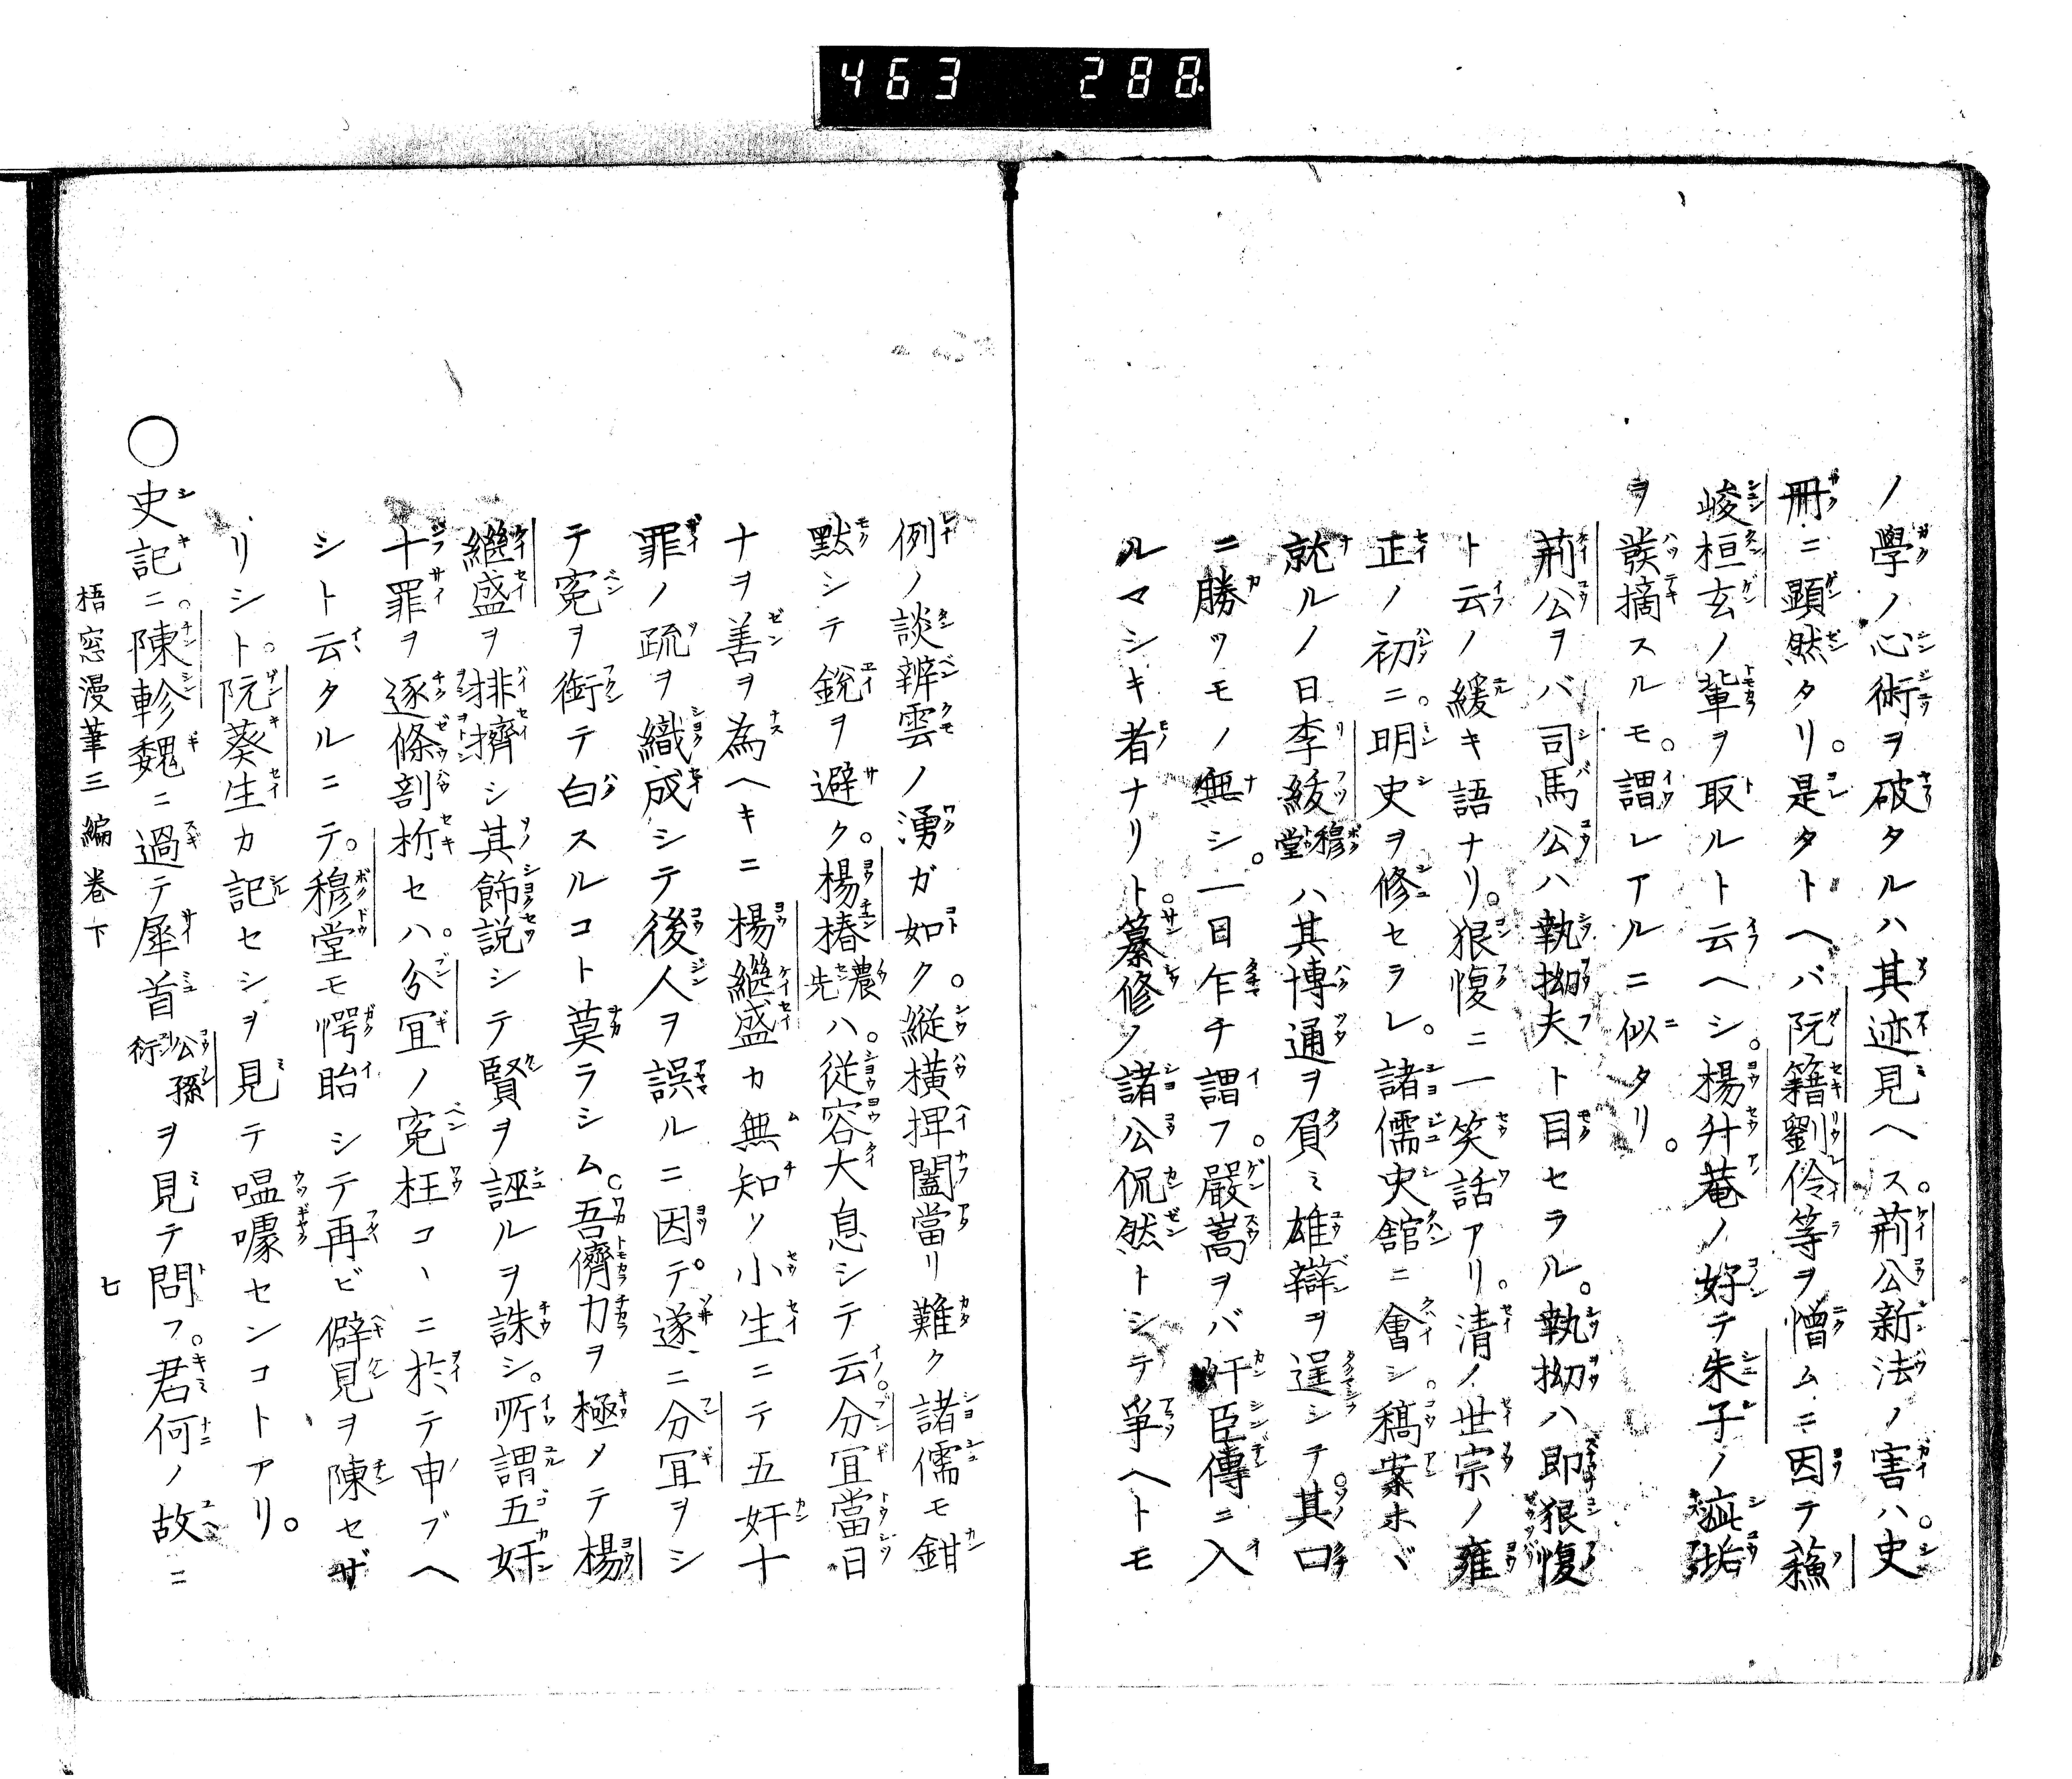 463 288
ノ學ノ心術ヲ破タルハ其迹見ヘス。荊公新法ノ害ハ。史
冊ニ顯然タリ。是タトヘバ阮籍劉伶等ヲ憎ムニ因テ蘓
峻桓玄ノ輩ヲ取ルト云ヘシ。楊升菴ノ好テ朱子ノ疵垢
ヲ發摘スルモ。謂レアルニ似タリ。
荊公ヲバ司馬公ハ執拗夫ト目セラル。執拗ハ即狠愎
ト云ノ緩キ語ナリ。狠愎ニ一笑話アリ。清ノ世宗ノ雍
正ノ初ニ。明史ヲ修セラレ。諸儒史舘ニ會シ。稿案ホヾ
就ルノ日李紱穆堂ハ其博通ヲ負ミ雄辯ヲ逞シテ。其口
ニ勝ツモノ無シ。一目乍チ謂フ。嚴嵩ヲバ奸臣傳ニ入
ルマシキ者ナリト。纂修ノ諸公侃然トシテ爭ヘトモ
例ノ談辨雲ノ湧ガ如ク。縦橫捭闔當リ難ク諸儒モ鉗
黙シテ銳ヲ避ク。楊椿農先ハ。従容大息シテ云。分宜當日
ナヲ善ヲ為ヘキニ楊繼盛カ無知ノ小生ニテ五奸十
罪ノ疏ヲ織成シテ後人ヲ誤ルニ因テ。遂ニ分宜ヲシ
テ冤ヲ銜テ白スルコト莫ラシム。吾儕力ヲ極メテ楊
繼盛ヲ排擠シ其飾説シテ賢ヲ誣ルヲ誅シ。所謂五奸
十罪ヲ逐條剖析セハ。分宜ノ冤枉コヽニ於テ申ブヘ
シト云タルニテ。穆堂モ愕眙シテ再ビ僻見ヲ陳セザ
リシト。阮葵生カ記セシヲ見テ嗢噱センコトアリ。
○史記ニ。陳軫魏ニ過テ犀首公孫衍ヲ見テ問フ。君何ノ故ニ
梧窓漫筆三編卷下 七